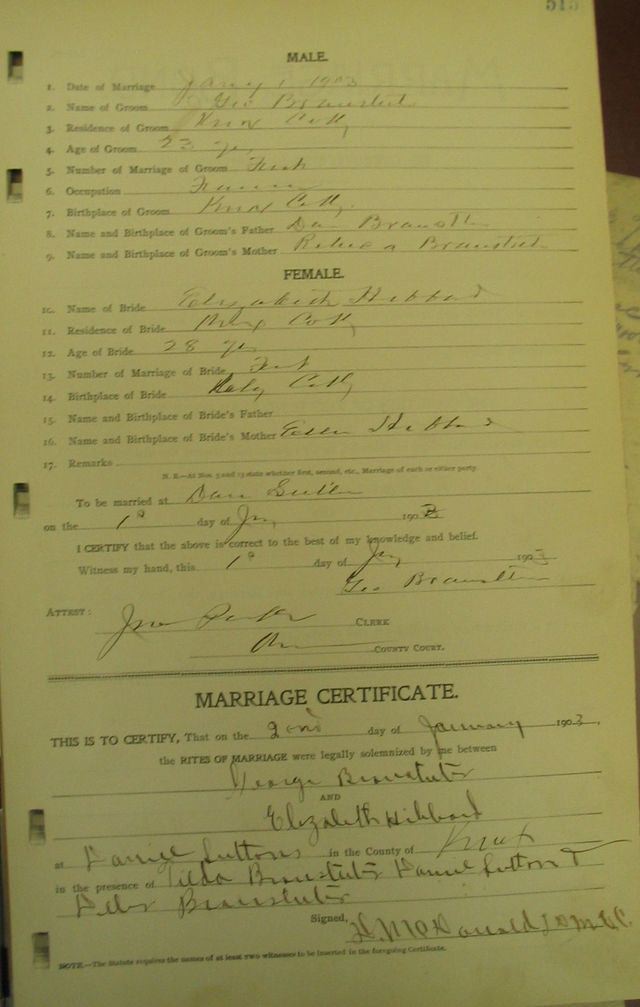 515
MALE.
1. Date of Marriage Jany 1 1903
2. Name of Groom Geo Branstuter
3. Residence of Groom Knox Co Ky
4. Age of Groom 23 yrs
5. Number of Marriage of Groom First
6. Occupation Farmer
7. Birthplace of Groom Knox Co Ky.
8. Name and Birthplace of Groom's Father Dan
9. Name and Birthplace of Groom's Mother
FEMALE.
10. Name of Bride Elizabeth Hibbard
11. Residence of Bride Knox Co Ky
12. Age of Bride 28 yrs
13. Number of Marriage of Bride First
14. Birthplace of Bride Co Ky
15. Name and Birthplace of Bride's Father
16. Name and Birthplace of Bride's Mother Hibbard
17. Remarks
N. B.—At Nos. 5 and 13 state whether first, second, etc., Marriage of each or either party.
To be married at Dan Sutton
on the 1st day of Jany 1903
I CERTIFY that the above is correct to the best of my knowledge and belief.
Witness my hand, this 1st day of Jany 1903
Geo
ATTEST:
CLERK
COUNTY COURT.
MARRIAGE CERTIFICATE.
THIS IS TO CERTIFY, That on the 2ond day of January 1903,
the RITES OF MARRIAGE were legally solemnized by me between
George Branstuter
AND
Elizabeth Hibbard
at Daniel Suttons in the County of Knox
in the presence of Branstuter Daniel Sutton
Branstuter
Signed,
NOTE.—The Statute requires the names of at least two witnesses to be inserted in the foregoing Certificate.